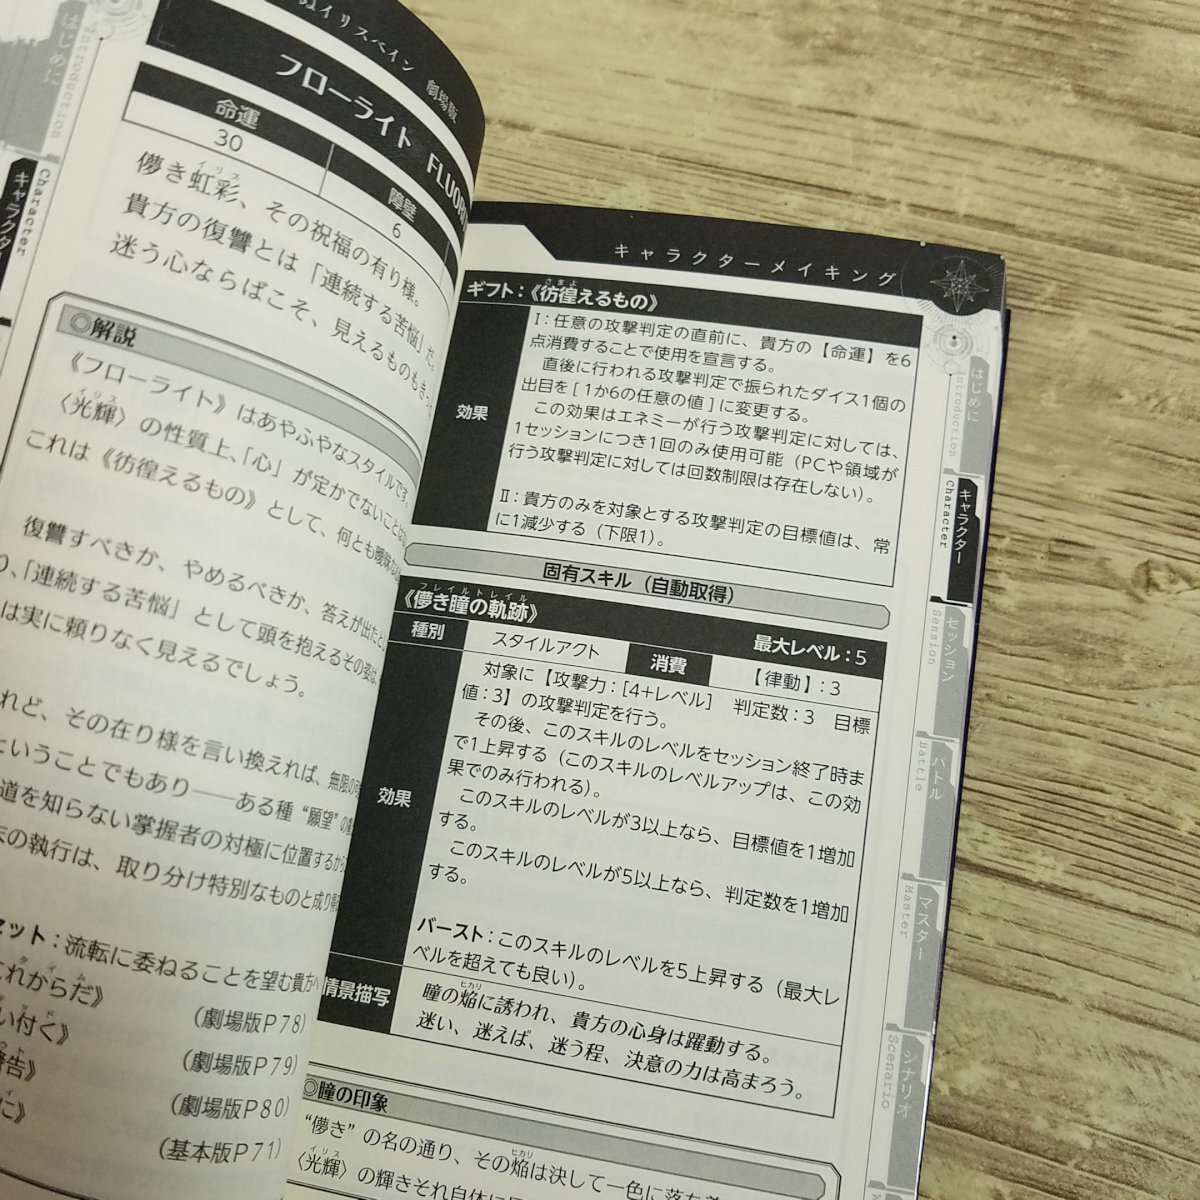 イリスベイン 劇場版
はじめに
Introduction
Character
キャラクター
フローライト
命運
30
障壁
6
儚き虹彩、その祝福の有り様。
イリス
貴方の復讐とは「連続する苦悩」だ。
迷う心ならばこそ、見えるものも
◎解説
《フローライト》はあやふやなスタイルです
イリス
〈光輝〉の性質上、「心」が定かでないことは
これは《彷徨えるもの》として、何とも曖昧な
復讐すべきか、やめるべきか、答えが出たと
「連続する苦悩」として頭を抱えるその姿は、
は実に頼りなく見えるでしょう。
れど、その在り様を言い換えれば、無限の
ということでもあり――ある種“願望”の
道を知らない掌握者の対極に位置するから
の執行は、取り分け特別なものと成り
セット：流転に委ねることを望む貴方へ
タイム
これからだ》
(劇場版P78)
い付く》
(劇場版P79)
告》
(劇場版P80)
に》
(基本版P71)
キャラクターメイキング
さまよ
ギフト：《彷徨えるもの》
効果
Ⅰ：任意の攻撃判定の直前に、貴方の【命運】を6
点消費することで使用を宣言する。
直後に行われる攻撃判定で振られたダイス1個の
出目を[1か6の任意の値]に変更する。
この効果はエネミーが行う攻撃判定に対しては、
1セッションにつき1回のみ使用可能（PCや領域が
行う攻撃判定に対しては回数制限は存在しない）。
Ⅱ：貴方のみを対象とする攻撃判定の目標値は、常
に1減少する（下限1）。
固有スキル（自動取得）
フレイルトレイル
《儚き瞳の軌跡》
最大レベル：5
種別
スタイルアクト
消費
【律動】：3
効果
対象に【攻撃力：[4+レベル] 判定数：3 目標
値：3】の攻撃判定を行う。
その後、このスキルのレベルをセッション終了時ま
で1上昇する（このスキルのレベルアップは、この効
果でのみ行われる）。
このスキルのレベルが3以上なら、目標値を1増加
する。
このスキルのレベルが5以上なら、判定数を1増加
する。
バースト：このスキルのレベルを5上昇する（最大レ
ベルを超えても良い）。
情景描写
ヒカリ
瞳の焔に誘われ、貴方の心身は躍動する。
迷い、迷えば、迷う程、決意の力は高まろう。
◎瞳の印象
ヒカリ
“儚き”の名の通り、その焔は決して一色に
イリス
〈光輝〉の輝きそれ自体に
はじめに
Introduction
キャラクター
Character
セッション
Session
バトル
Battle
マスター
Master
シナリオ
Scenario